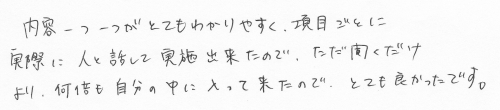 内容一つ一つがとてもわかりやすく、項目ごとに
実際に人と話して実施出来たので、ただ聞くだけ
より、何倍も自分の中に入って来たので、とても良かったです。